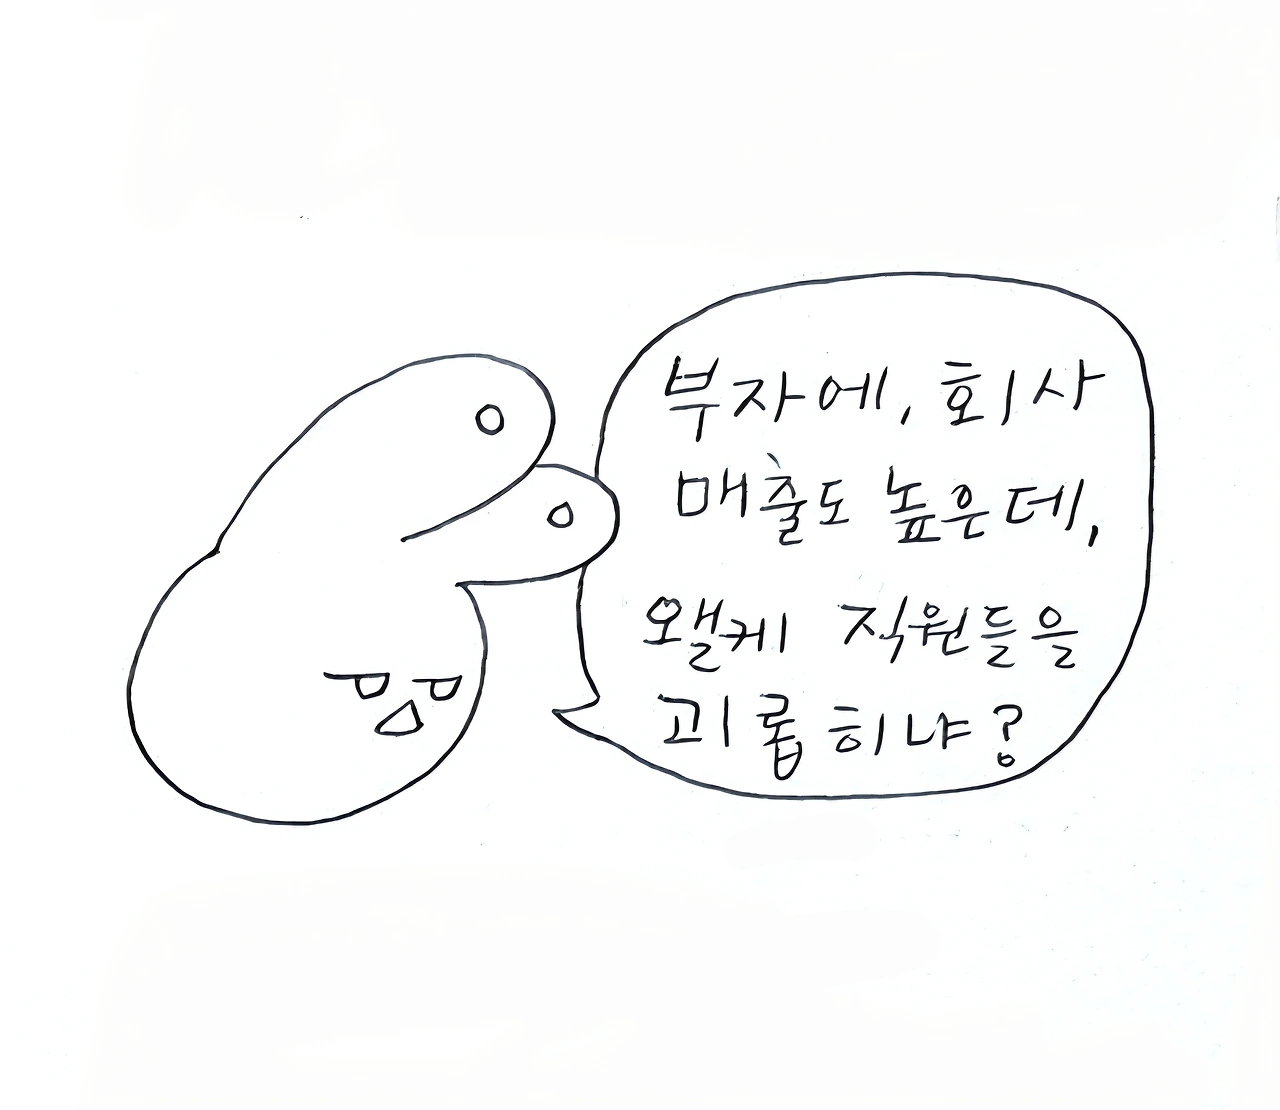 부자에, 회사
매출도 높은데,
왤케 직원들을
괴롭히냐?